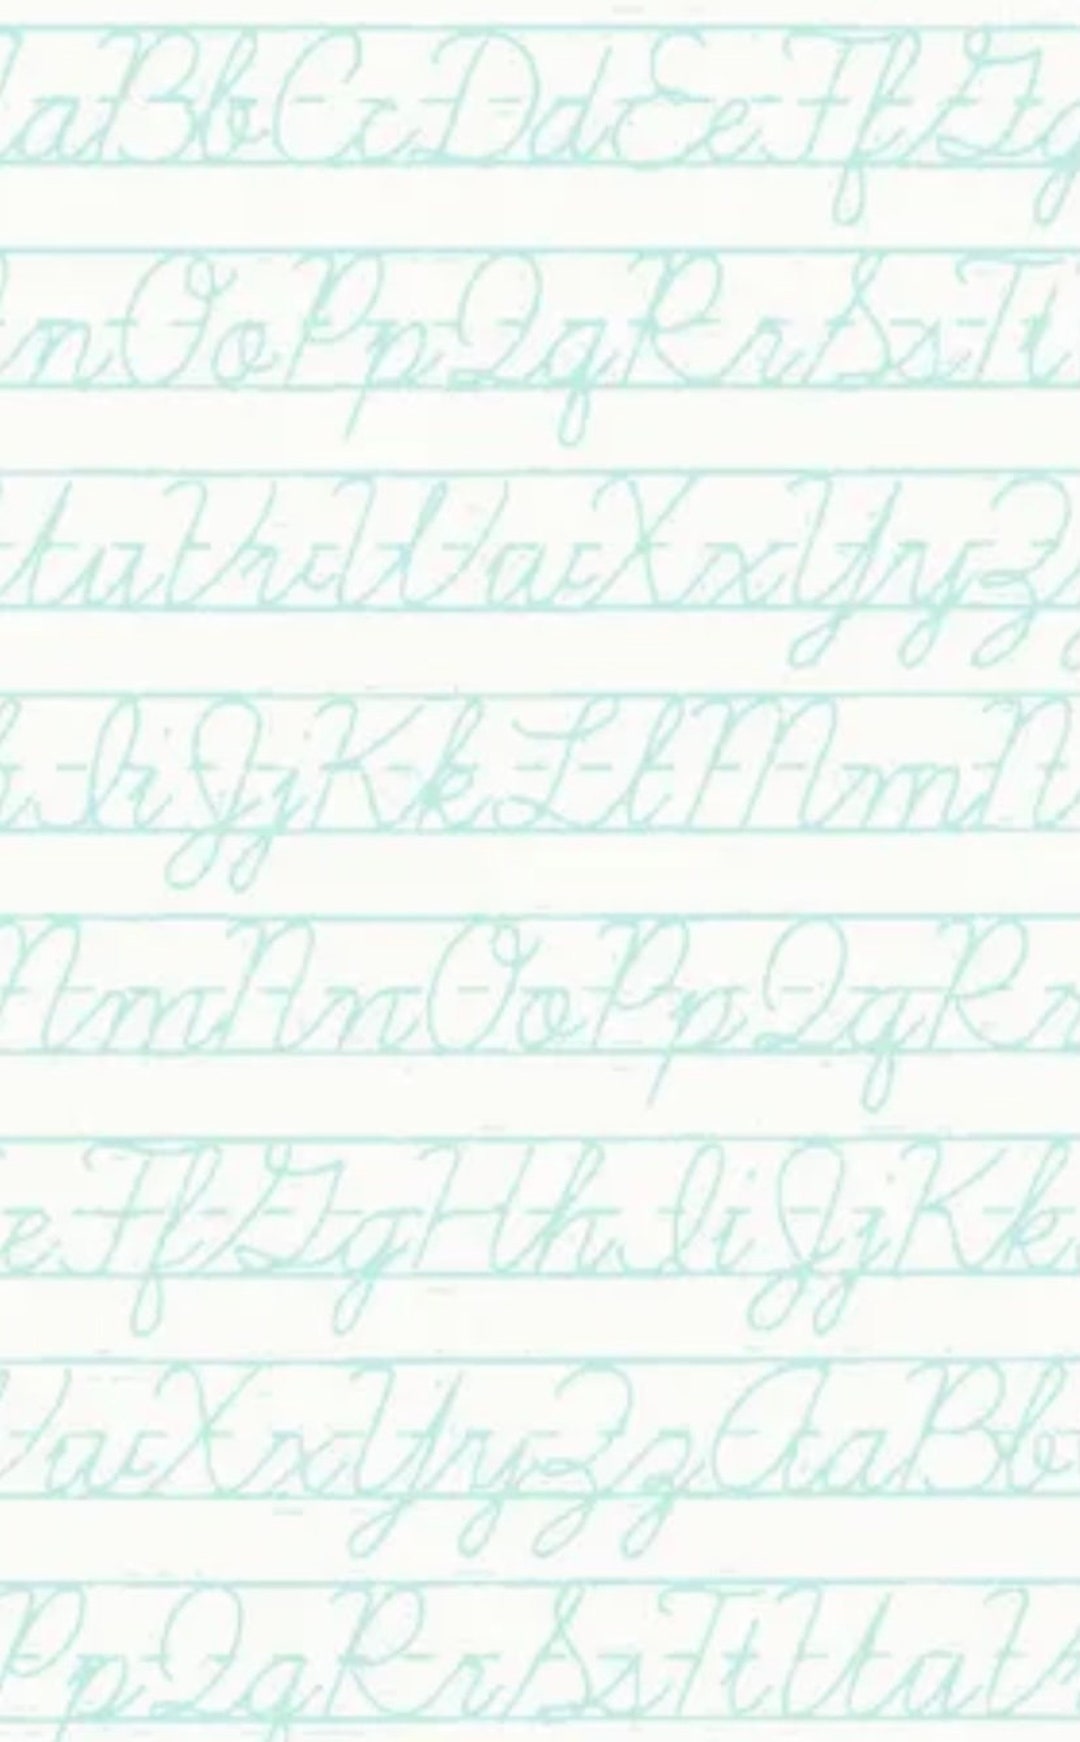 aBbCcDdEeFfGg
nOoPpQqRrSsTt
UuVvWwXxYyZz
IiJjKkLlMmN
MmNnOoPpQqRr
eFfGgHhIiJjKk
WwXxYyZzAaBb
PpQqRrSsTtUuV